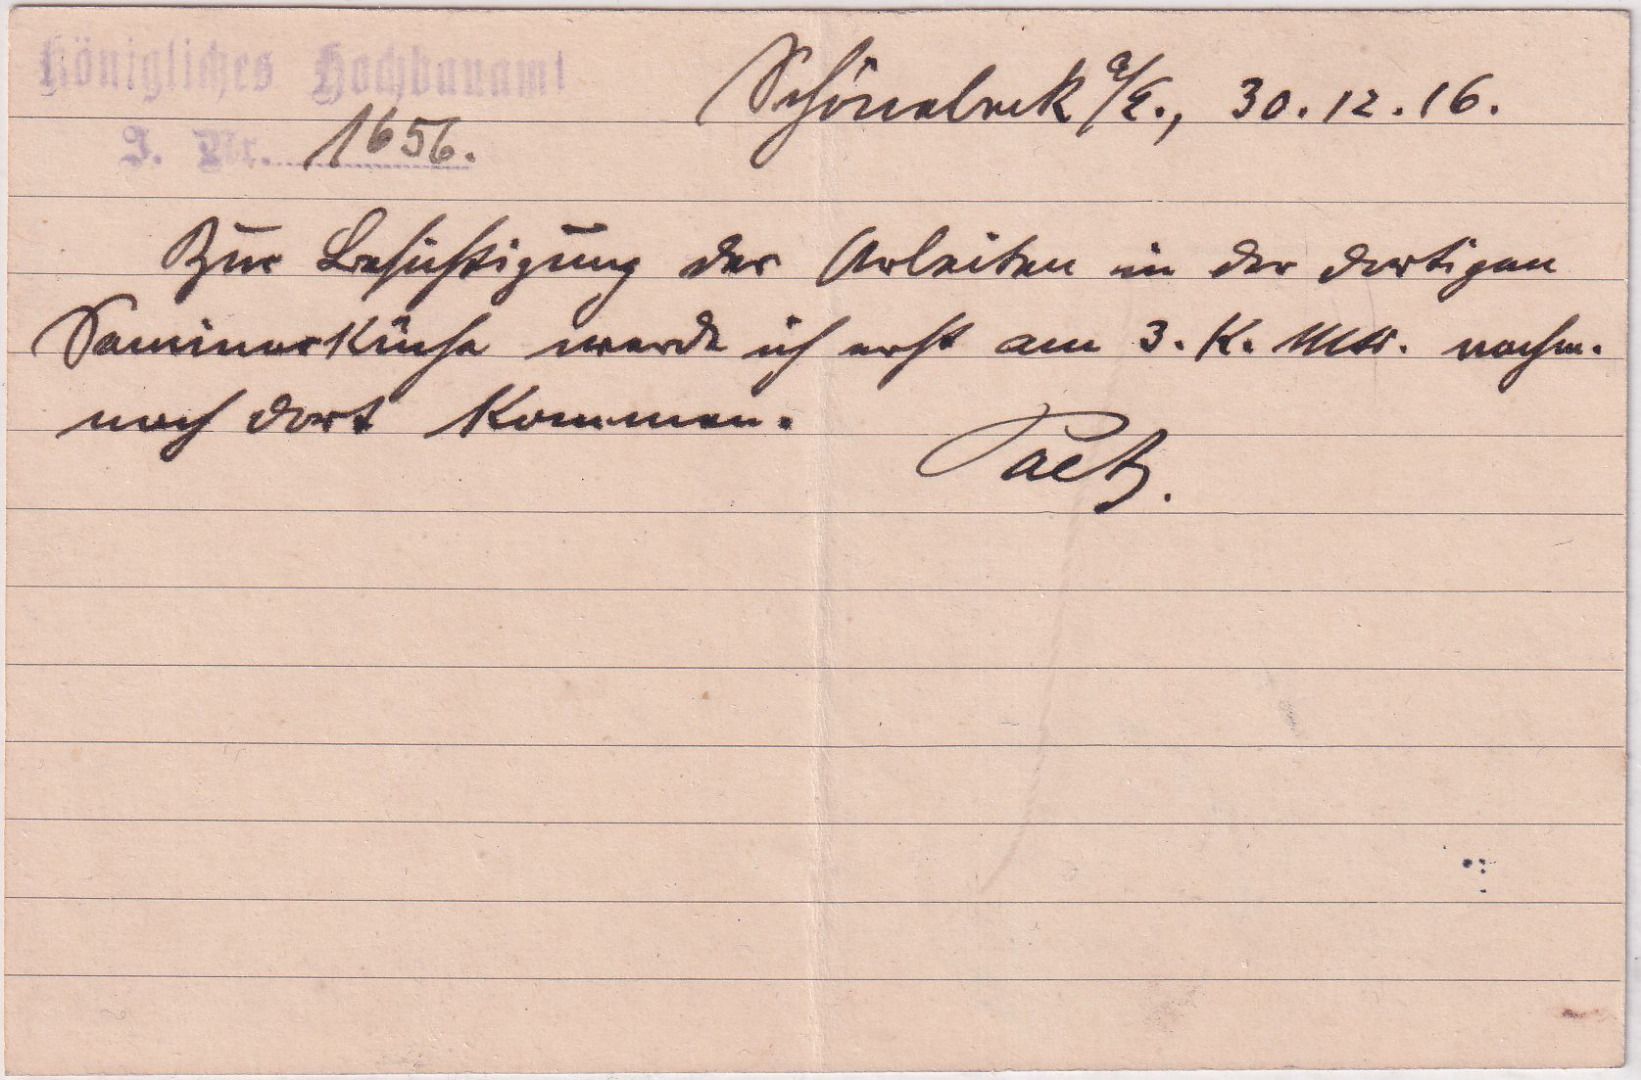 Königliches Hochbauamt
J. Nr. 1656.
Schönebeck a/E., 30.12.16.
Zur Besichtigung der Arbeiten in der dortigen
Seminarküche werde ich erst am 3. k. Mts. nachm.
nach dort kommen.
Paetz.